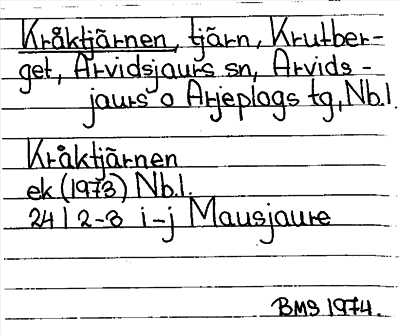 Kråktjärnen, tjärn, Krutber-
get, Arvidsjaurs sn, Arvids-
jaurs o Arjeplogs tg, Nb.l.
Kråktjärnen
ek (1973) Nb.l.
24 I 2-3 i-j Mausjaure
BMS 1974.